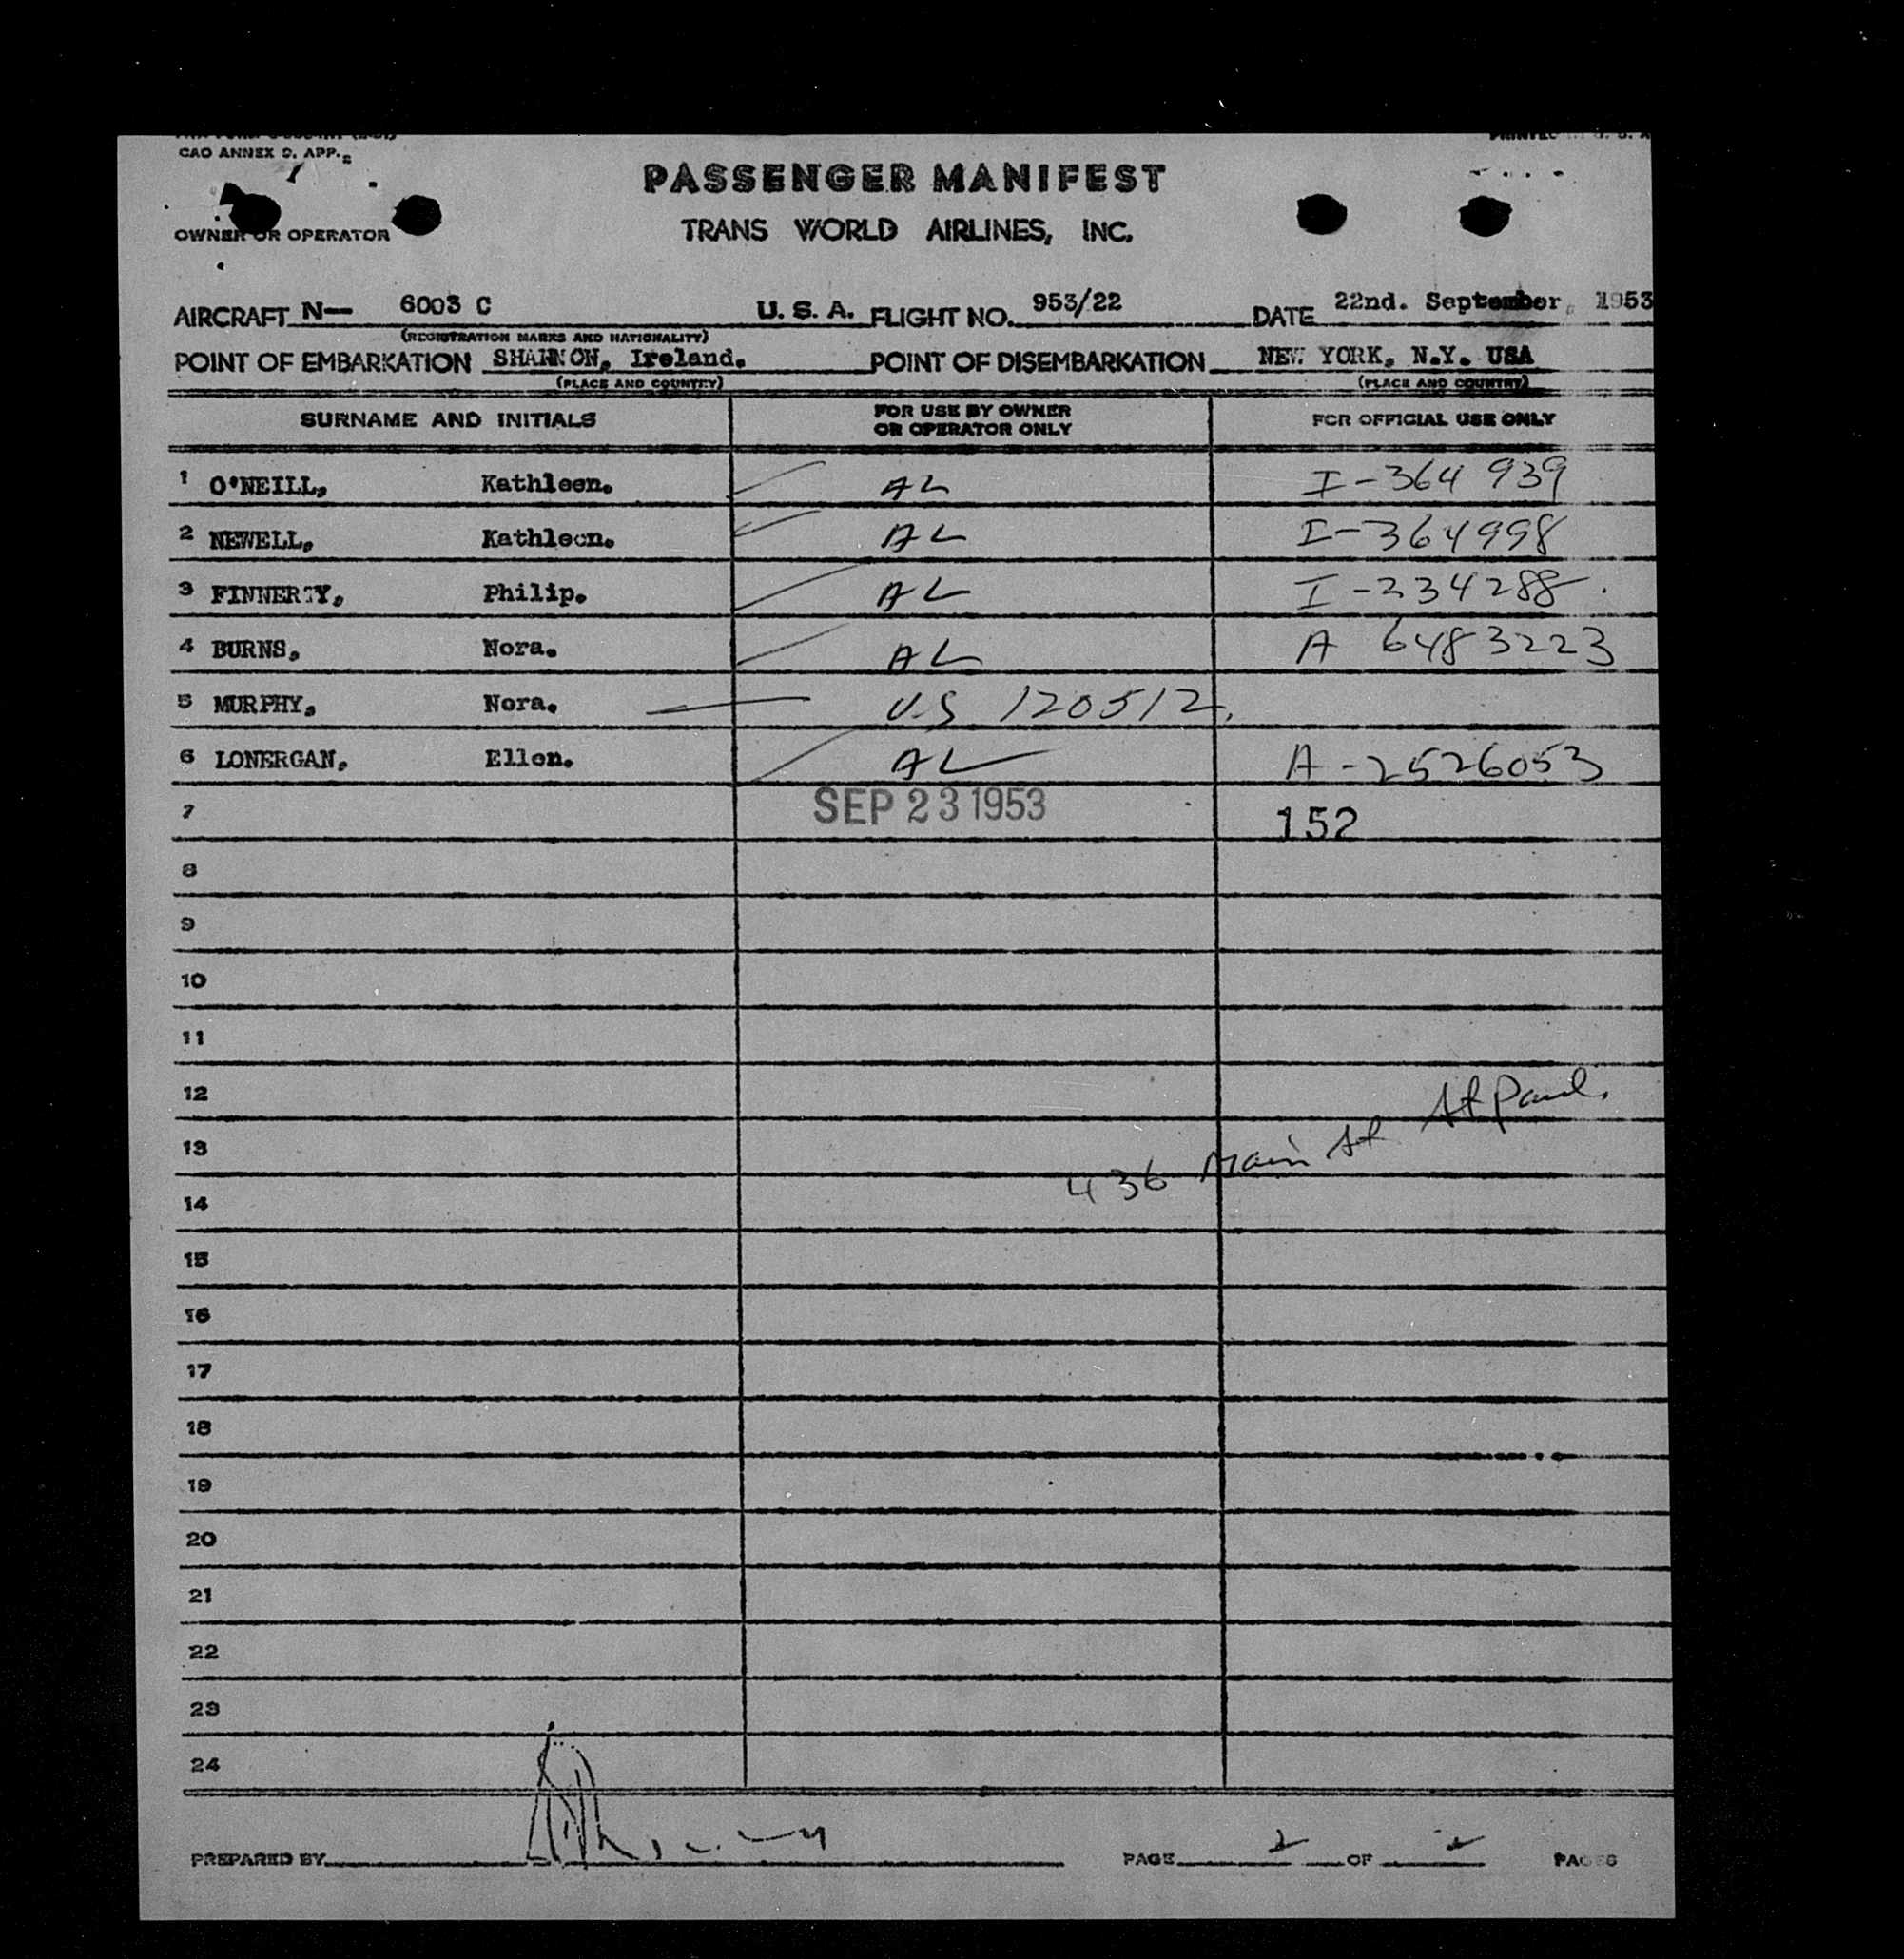 CAO ANNEX 9. APP. 2
PASSENGER MANIFEST
OWNER OR OPERATOR
TRANS WORLD AIRLINES, INC.
AIRCRAFT N— 6003 C U. S. A. FLIGHT NO. 953/22 DATE 22nd. September, 1953
(REGISTRATION MARKS AND NATIONALITY)
POINT OF EMBARKATION SHANNON, Ireland. POINT OF DISEMBARKATION NEW YORK, N.Y. USA
(PLACE AND COUNTRY) (PLACE AND COUNTRY)
SURNAME AND INITIALS FOR USE BY OWNER OR OPERATOR ONLY FOR OFFICIAL USE ONLY
1 O'NEILL, Kathleen. AL I-364 939
2 NEWELL, Kathleen. AL I-364998
3 FINNERTY, Philip. AL I-234288
4 BURNS, Nora. AL A 6483223
5 MURPHY, Nora. U.S 120512.
6 LONERGAN, Ellen. AL A-2526053
7 SEP 23 1953 152
8
9
10
11
12 St Paul.
13 436 Main St
14
15
16
17
18
19
20
21
22
23
24
PREPARED BY PAGE 2 OF 2 PAGES